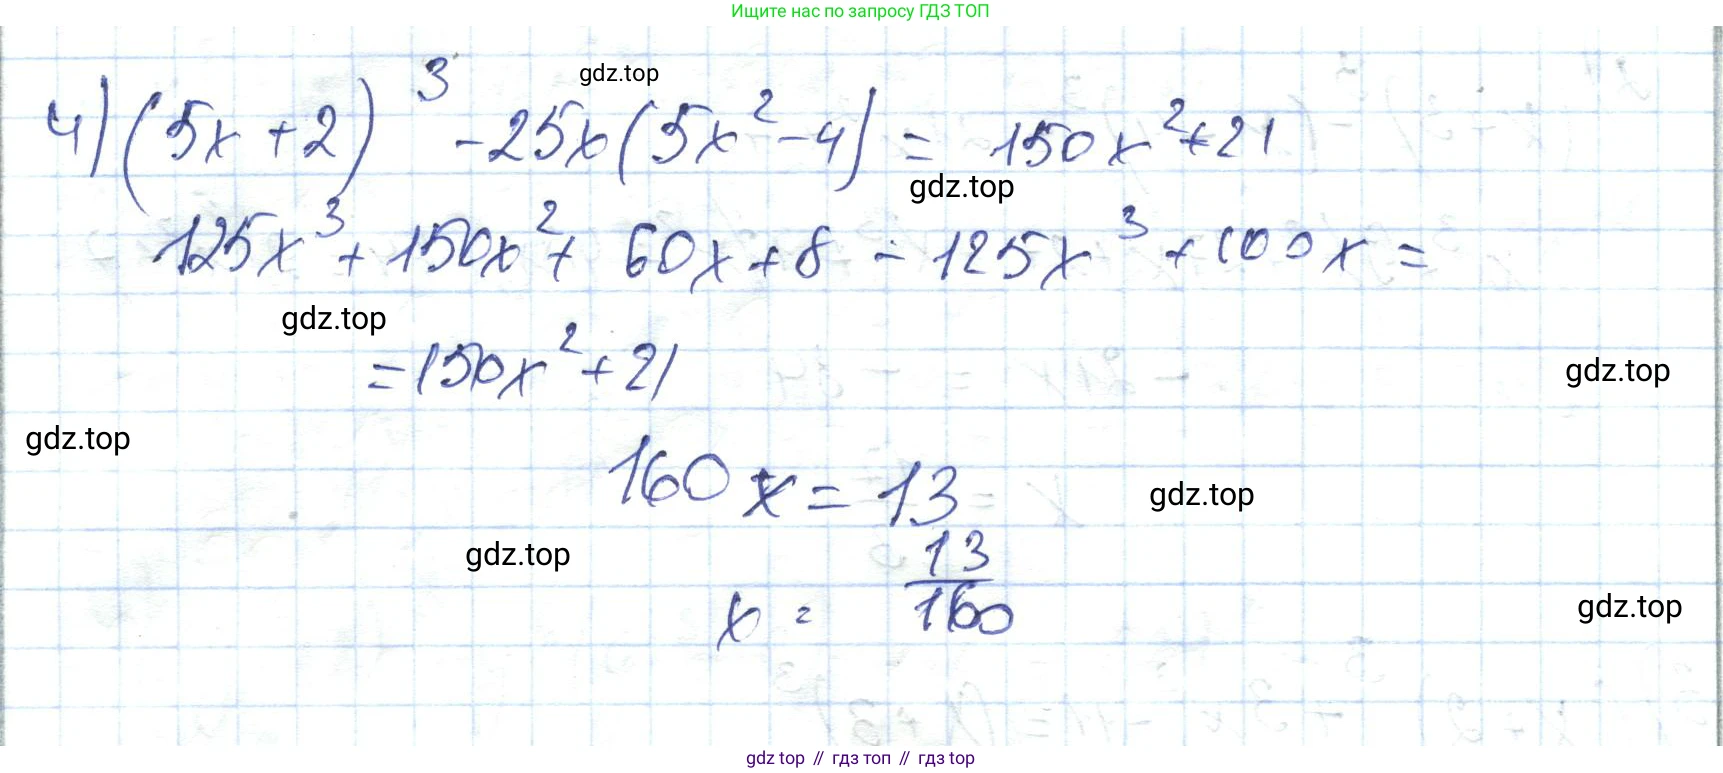 Ищите нас по запросу ГДЗ ТОП
gdz.top
4) (5x + 2)³ - 25x(5x² - 4) = 150x² + 21
gdz.top
125x³ + 150x² + 60x + 8 - 125x³ + 100x =
gdz.top
= 150x² + 21
gdz.top
gdz.top
160x = 13
gdz.top
gdz.top
x = 13/160
gdz.top
gdz.top // гдз топ // гдз top